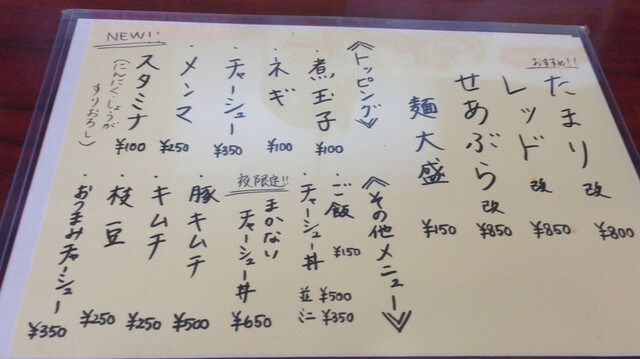 おすすめ!!
たまり改 ¥800
レッド改 ¥850
せあぶら改 ¥850
麺大盛 ¥150
《トッピング》
・煮玉子 ¥100
・ネギ ¥100
・チャーシュー ¥350
・メンマ ¥250
NEW!!
・スタミナ ¥100
(にんにく・しょうがすりおろし)
《その他メニュー》
・ご飯 ¥150
・チャーシュー丼 並 ¥500
ミニ ¥350
夜限定!!
まかない
チャーシュー丼 ¥650
・豚キムチ ¥500
・キムチ ¥250
・枝豆 ¥250
・おつまみチャーシュー ¥350